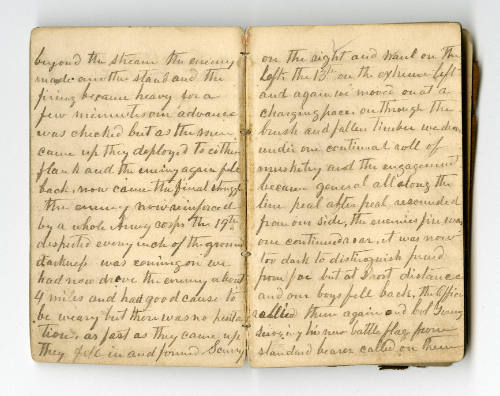 beyond the stream the enemy
made another stand and the
firing became heavy for a
few minnutes our advance
was checked but as the men
came up they deployed to either
flank and the enemy again fell
back, now came the final strugle
the enemy now reinforced
by a whole Army corps the 19th
despited every inch of the ground
darkness was coming on we
had now drove the enemy about
4 miles and had good cause to
be weary but there was no hesita
tion, as fast as they came up
they fell in and formed Scurry
on the right and Waul on the
left. the 13th on the extreme left
and again we moved on at a
charging pace on through the
brush and fallen timber we drove
under one continual roll of
musketry and the engagement
became general all along the
line peal after peal resounded
from our side, the enemies fire was
one continued roar, it was now
too dark to distinguish friend
from foe but at short distance
and our boys fell back, the officers
rallied them again and Col Scurry
seizing his new battle flag from
standard bearer called on them